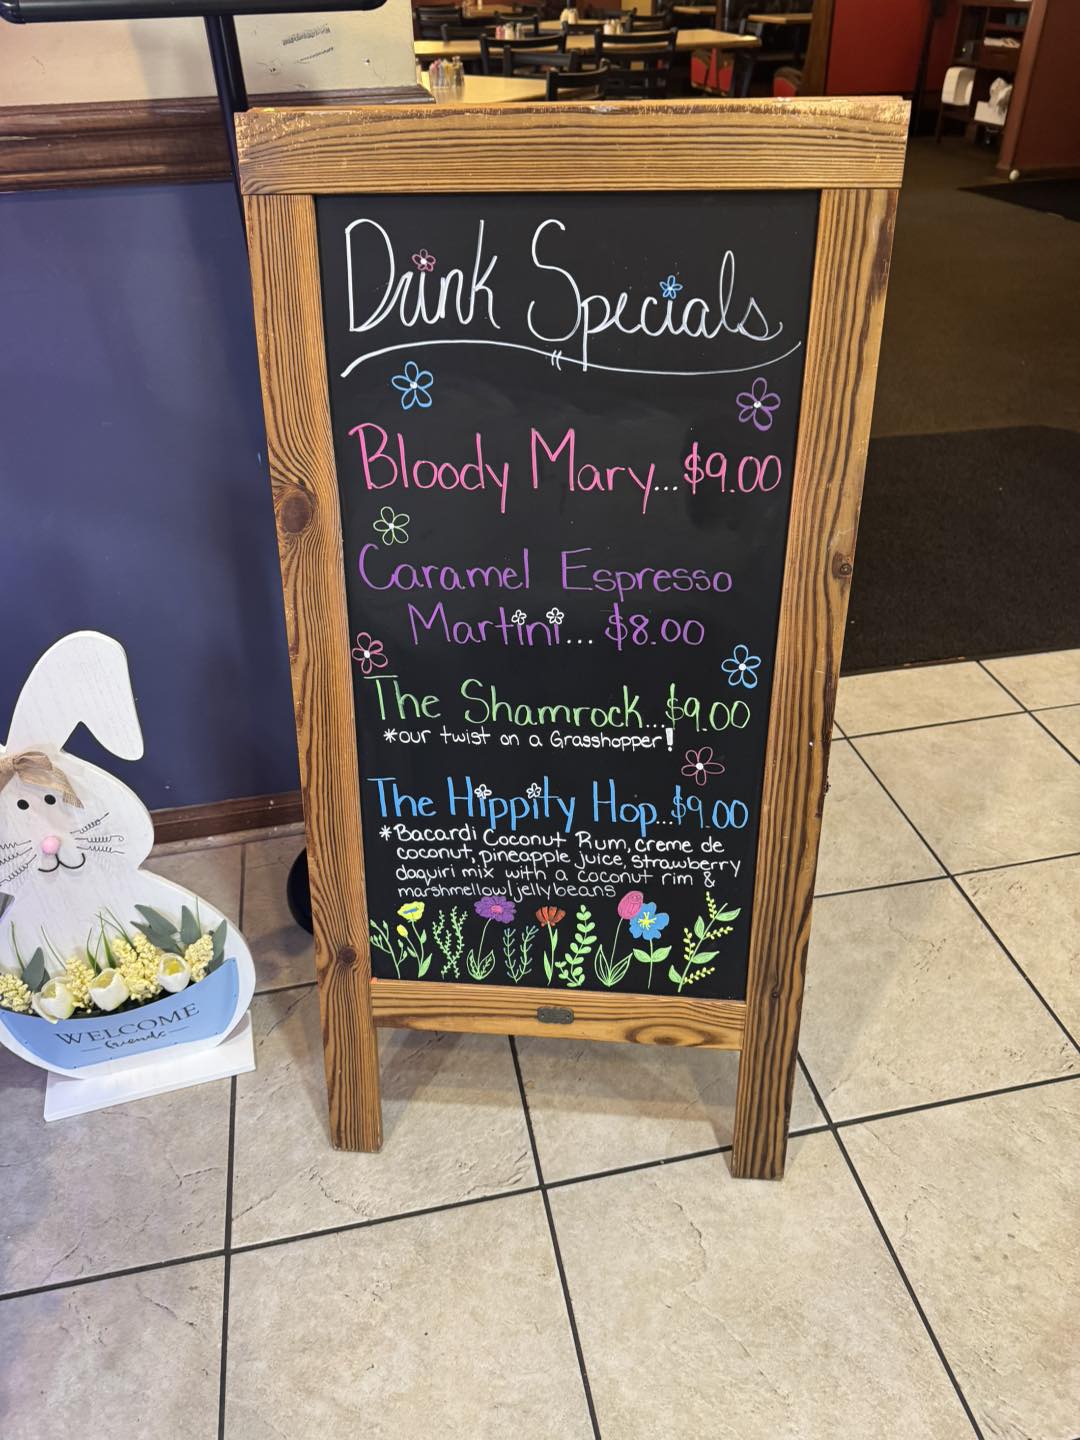 Drink Specials
Bloody Mary...$9.00
Caramel Espresso
Martini... $8.00
The Shamrock...$9.00
*our twist on a Grasshopper!
The Hippity Hop...$9.00
*Bacardi Coconut Rum, creme de
coconut, pineapple juice, strawberry
daquiri mix with a coconut rim &
marshmellow/jellybeans
WELCOME
friends